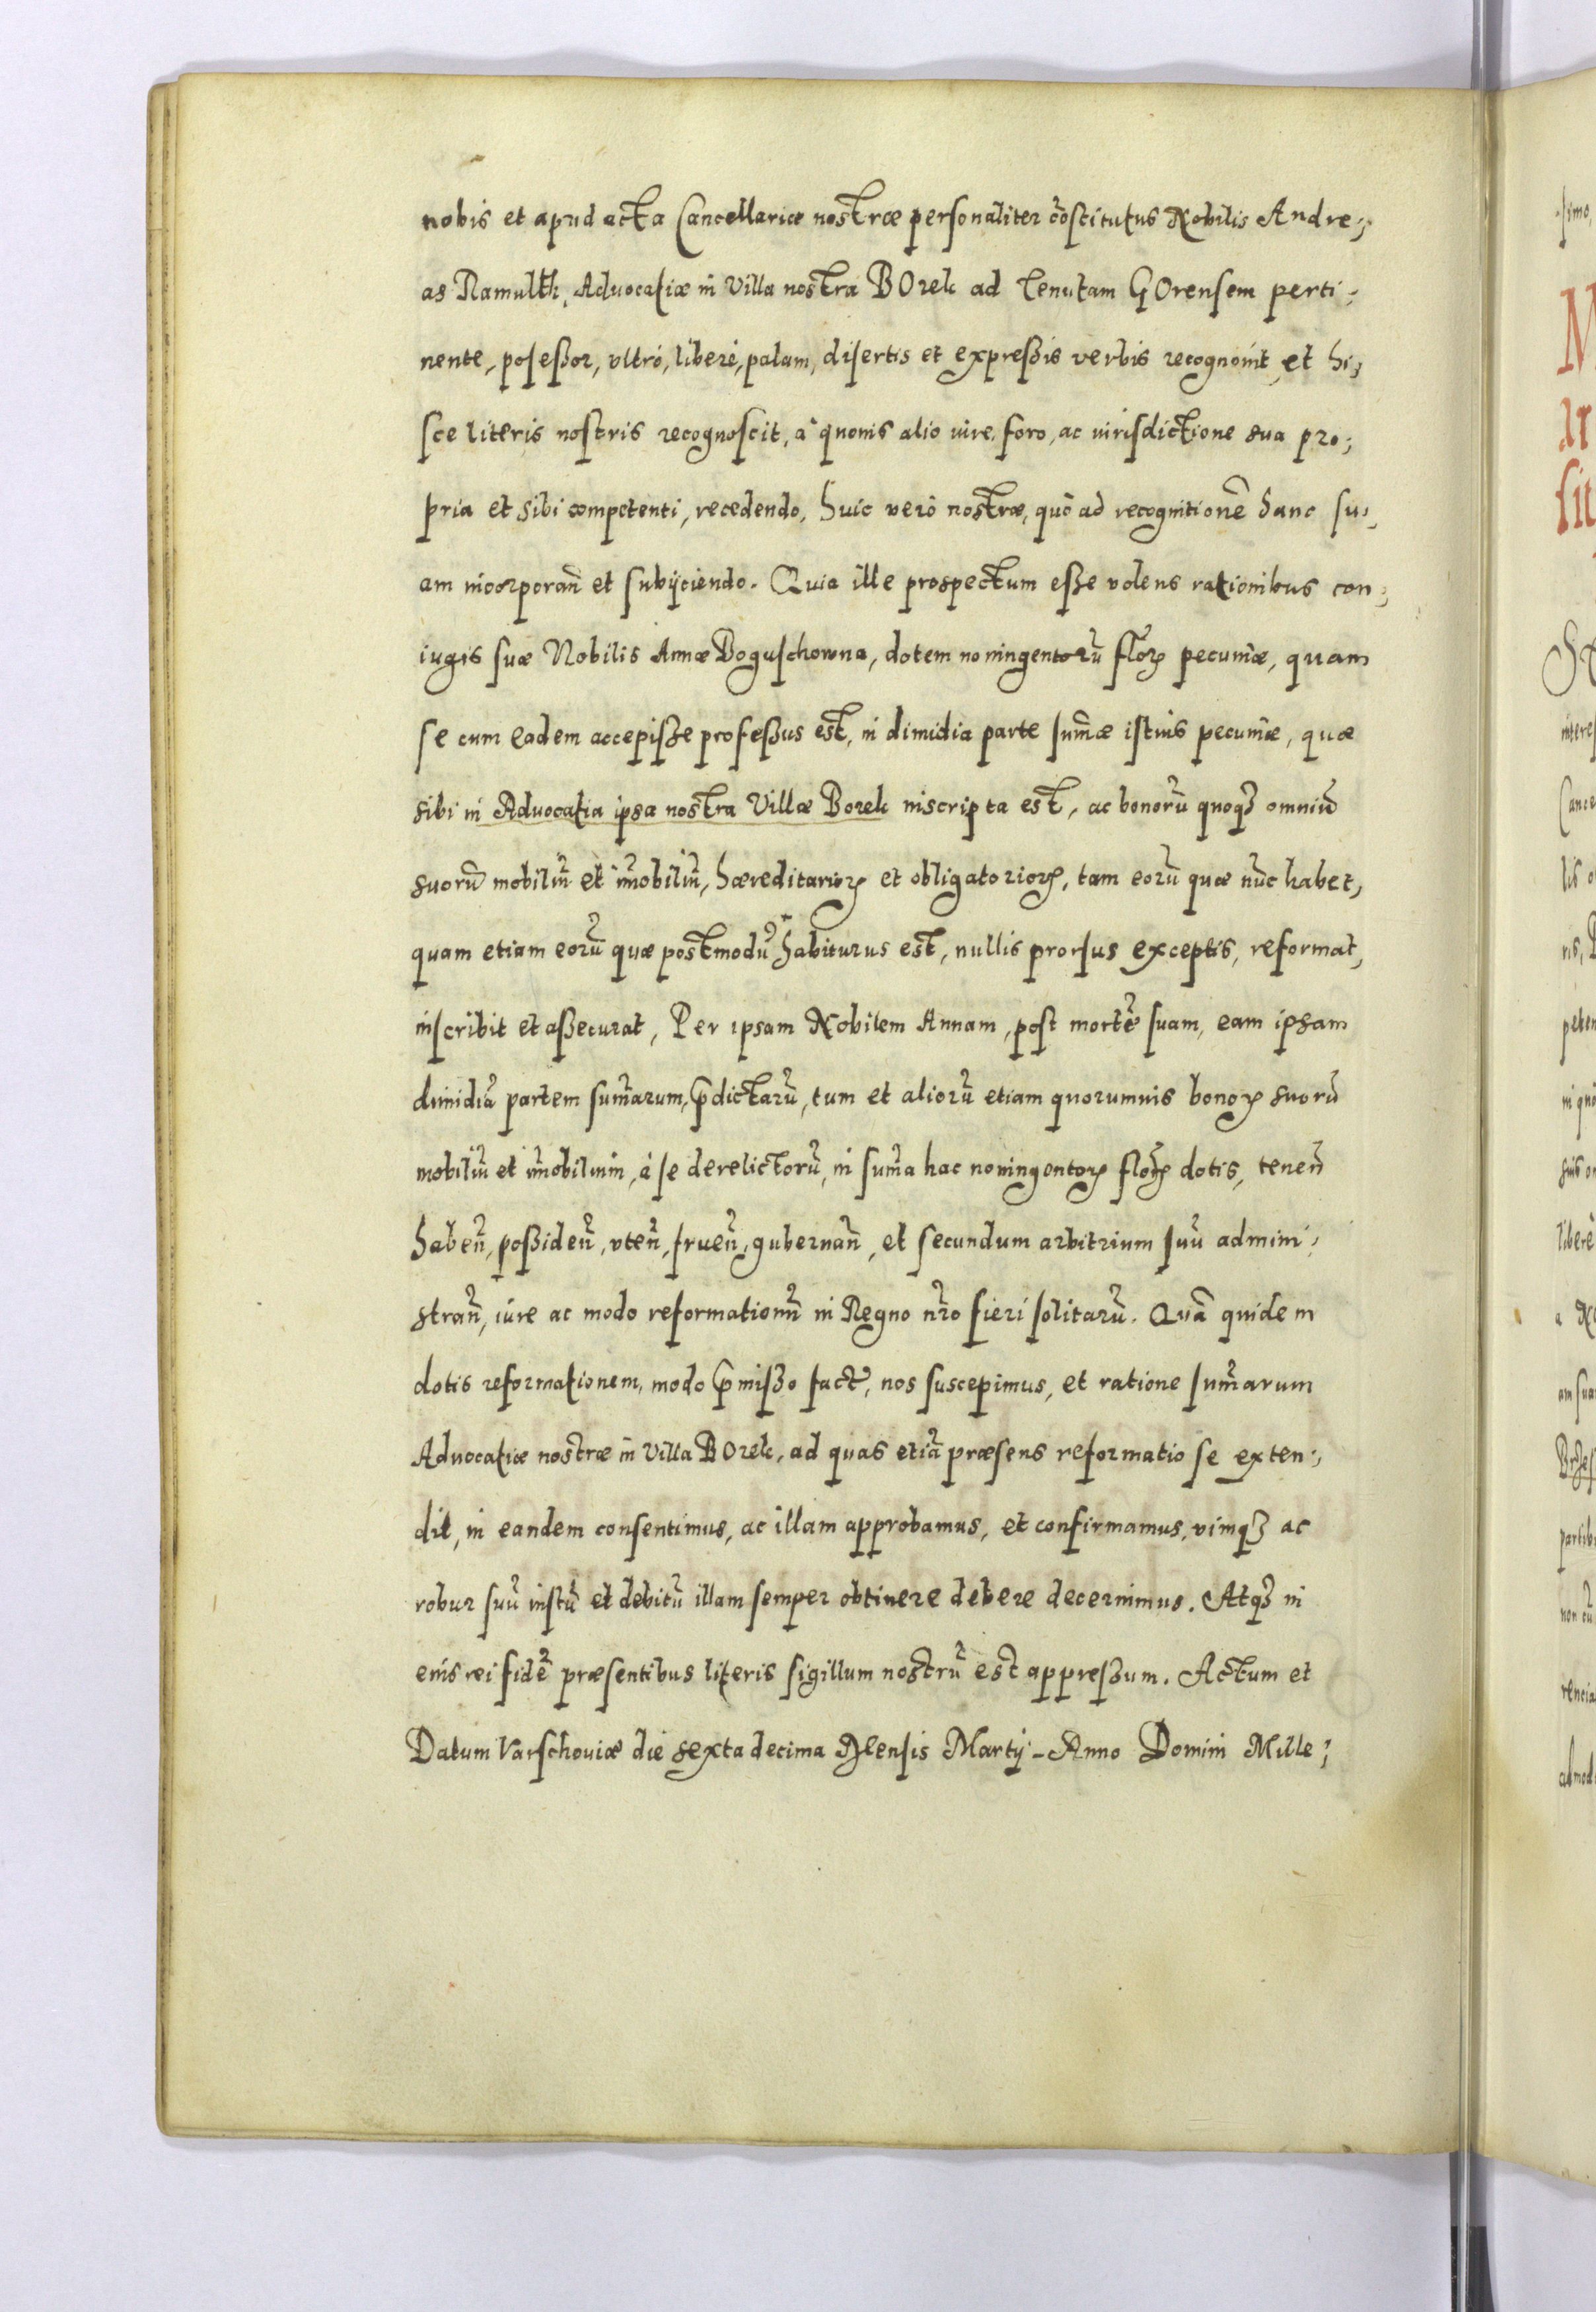 nobis et apud acta Cancellariæ nostræ personaliter cōstitutus Nobilis Andre-
as Ramulth, Advocatiæ in Villa nostra BOrek ad tenutam GOrensem perti-
nente, poseßor, vltrò, liberè, palam, disertis et expreßis verbis recognouit, et hi-
sce literis nostris recognoscit, à quouis alio iure, foro, ac iurisdictione sua pro-
pria et sibi competenti, recedendo, huic verò nostræ, quò ad recognitionē hanc su-
am incorporan̄ et subijciendo. Quia ille prospectum eße volens rationibus con-
iugis suæ Nobilis Annæ Boguschowna, dotem noningentorū floꝝ pecuniæ, quam
se cum eadem accepiße profeßus est, in dimidia parte sum̄æ istius pecuniæ, quæ
sibi in Advocatia ipsa nostra Villæ Borek inscripta est, ac bonorū quoqꝫ omniū
suorū mobiliū et im̄obiliū, hæreditarioꝝ et obligatorioꝝ, tam eorū quæ nūc habet,
quam etiam eorū quæ postmodū habiturus est, nullis prorsus exceptis, reformat,
inscribit et aßecurat, Per ipsam Nobilem Annam, post mortē suam, eam ipsam
dimidiā partem sum̄arum, p̄dictarū, tum et aliorū etiam quorumuis bonoꝝ suorū
mobiliū et im̄obilium, à se derelictorū, in sum̄a hac noningentoꝝ floꝝ dotis, tenen̄
haben̄, poßiden̄, vten̄, fruen̄, gubernan̄, et secundum arbitrium suū admini-
stran̄, iure ac modo reformationū in Regno nr̄o fieri solitarū. Quā quidem
dotis reformationem, modo p̄mißo factā, nos suscepimus, et ratione sum̄arum
Advocatiæ nostræ in Villa BOrek, ad quas etiā præsens reformatio se exten-
dit, in eandem consentimus, ac illam approbamus, et confirmamus, vimqꝫ ac
robur suū iustū et debitū illam semper obtinere debere decernimus. Atqꝫ in
eius rei fidē præsentibus literis sigillum nostrū est appreßum. Actum et
Datum Varschouiæ die sexta decima Mensis Martij - Anno Domini Mille-